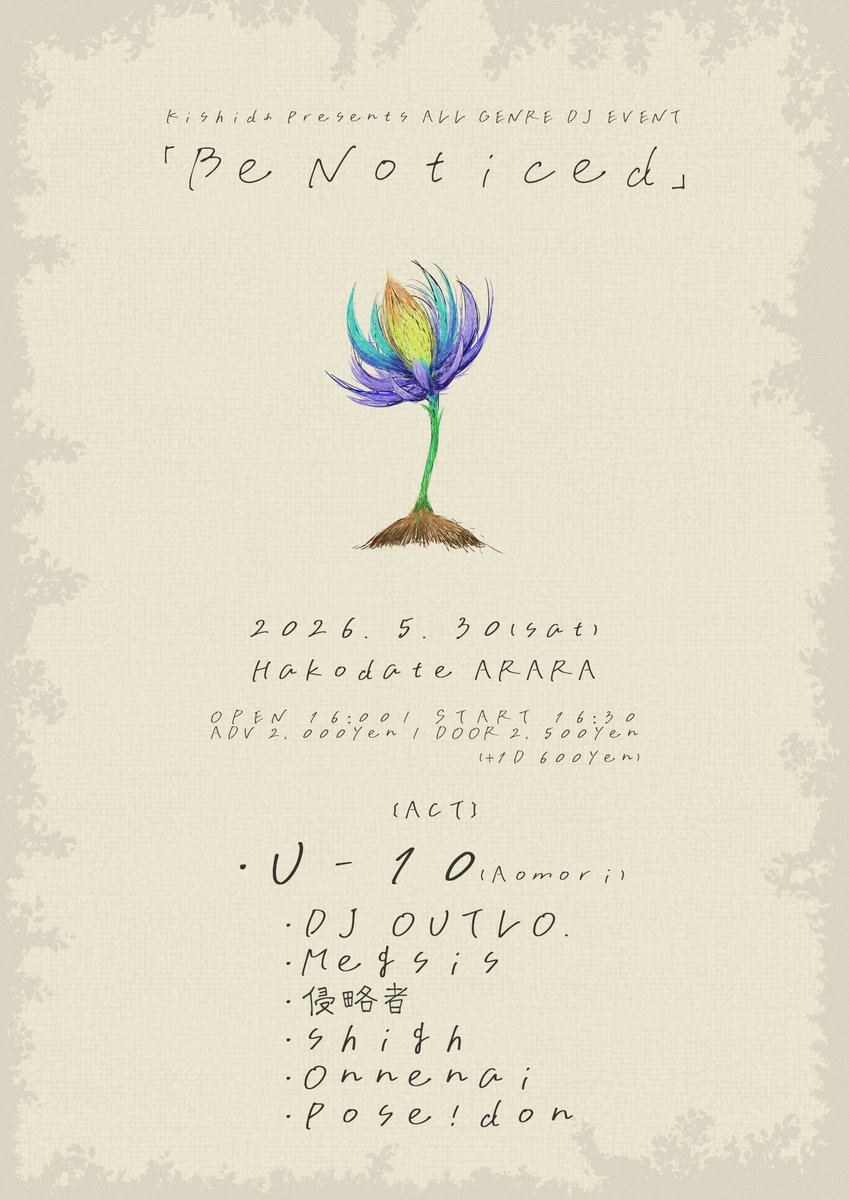 Kishida Presents ALL GENRE DJ EVENT
「Be Noticed」
2026. 5. 30(sat)
Hakodate ARARA
OPEN 16:00 / START 16:30
ADV 2,000Yen / DOOR 2,500Yen
(+1D 600Yen)
[ACT]
・U-10(Aomori)
・DJ OUTLO.
・Megsis
・侵略者
・shigh
・Onnenai
・Pose!don